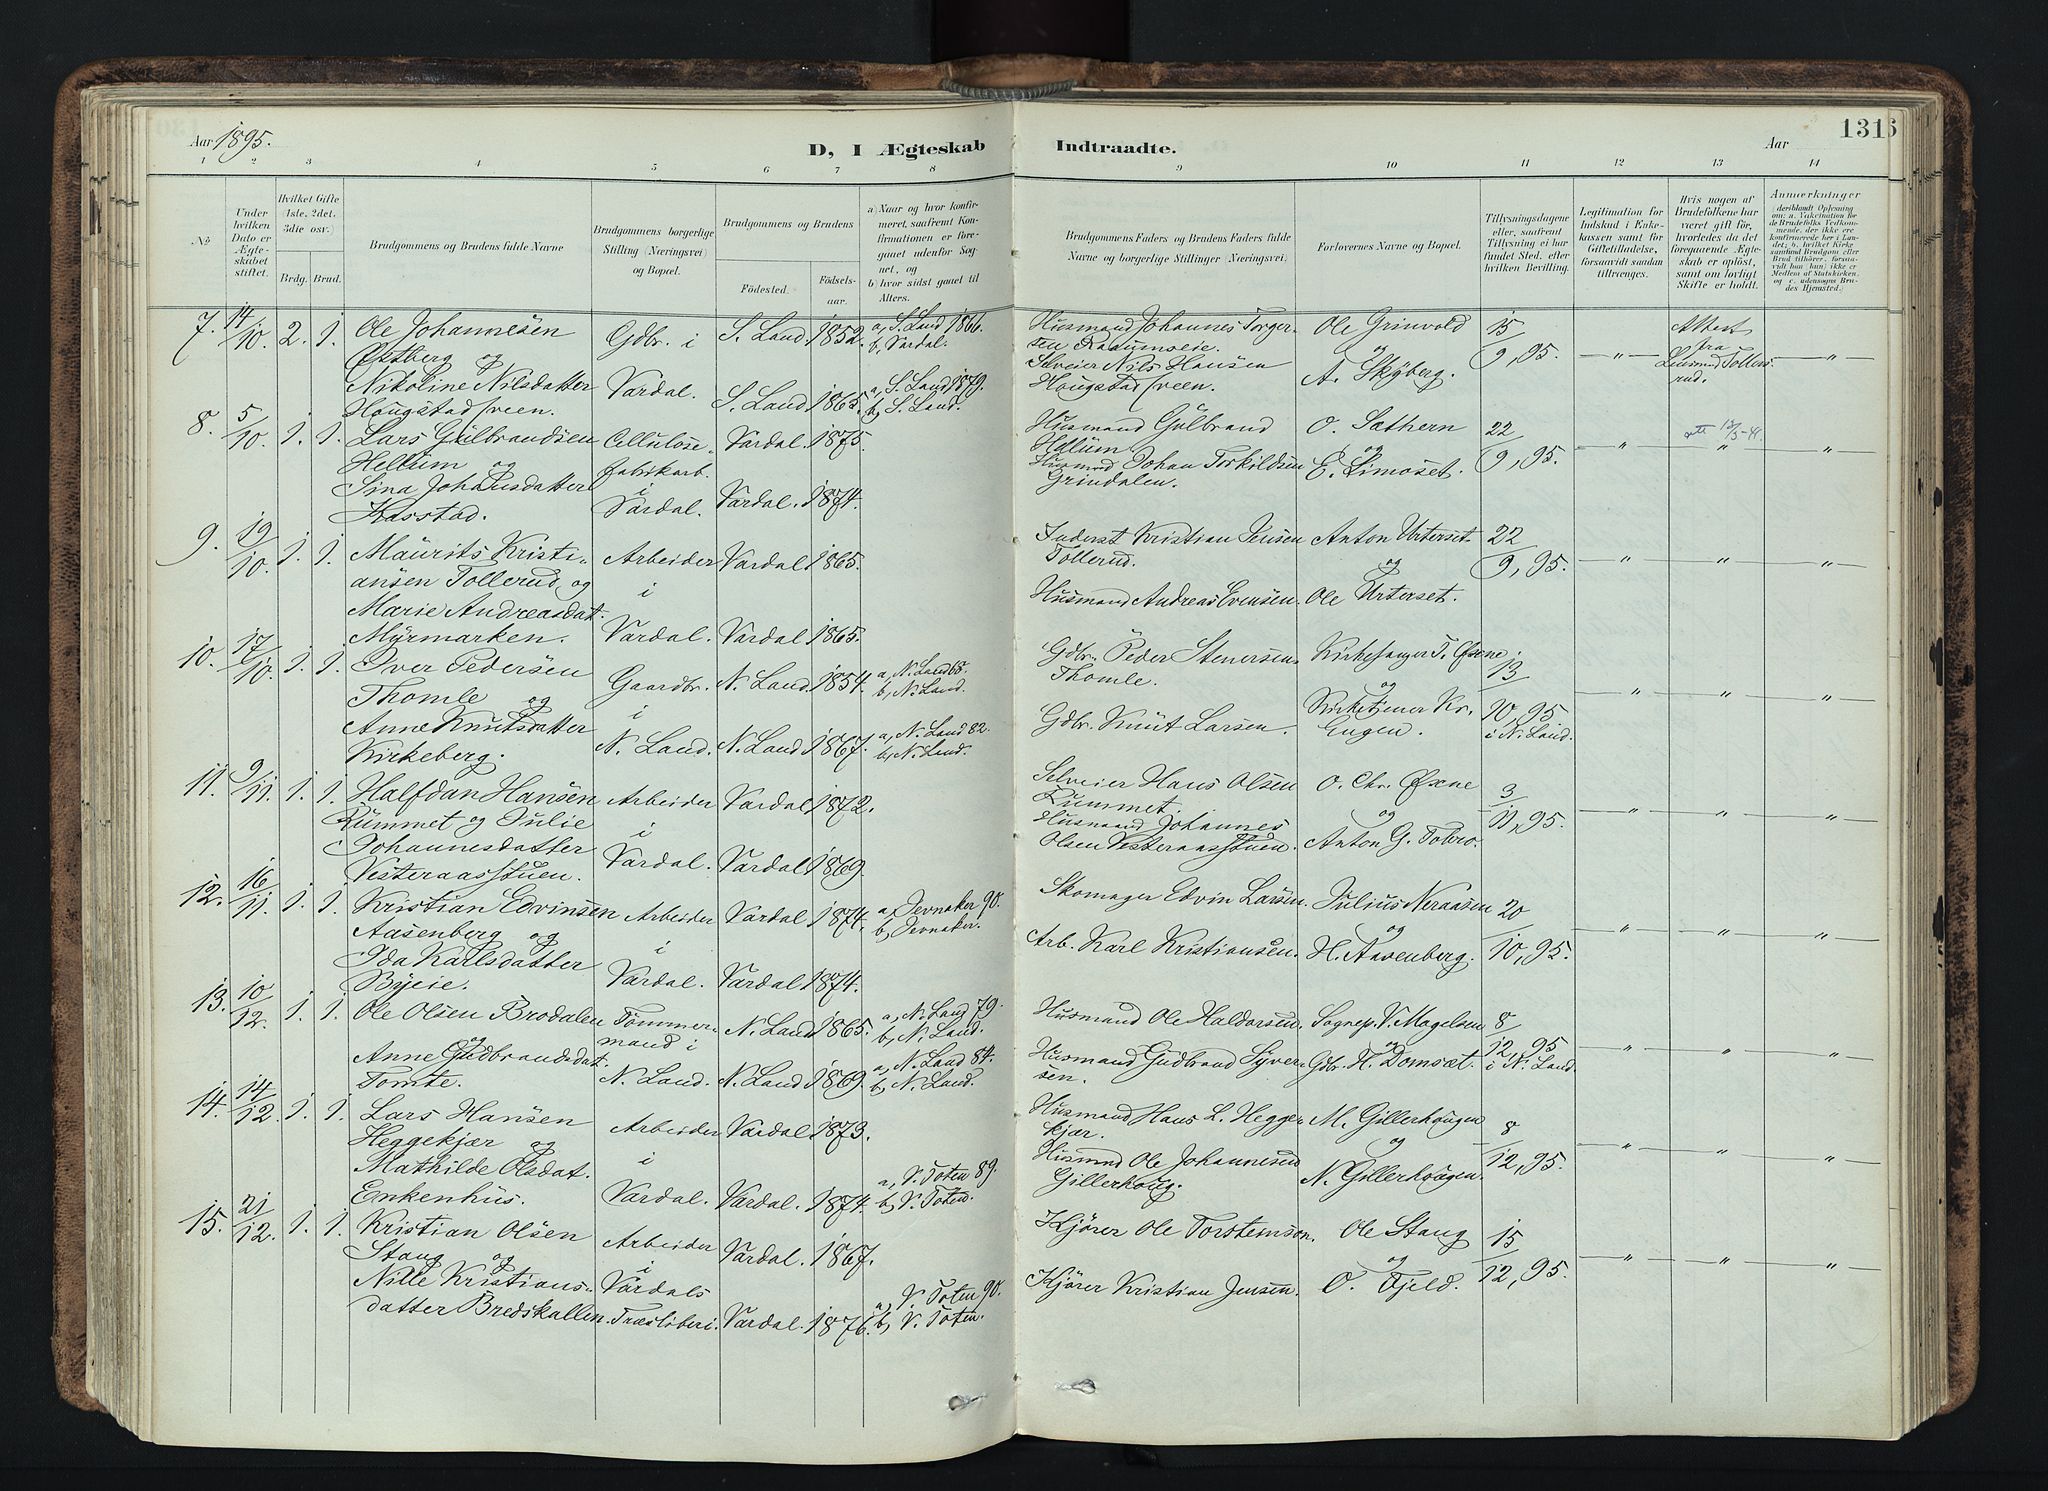 Aar 1895.
D, I Ægteskab
Indtraadte.
Aar
131
1 2 3 4 5 6 7 8 9 10 11 12 13 14
No
Under hvilken Dato er Ægteskabet stiftet.
Hvilket Gifte (1ste, 2det, 3die osv.)
Brdg. Brud.
Brudgommens og Brudens fulde Navne
Brudgommens borgerlige Stilling (Næringsvei) og Bopæl.
Brudgommens og Brudens
Fødested.
Fødselsaar.
a) Naar og hvor konfirmeret, saafremt Konfirmationen er foregaaet udenfor Sognet, og
b) hvor sidst gaaet til Alters.
Brudgommens Faders og Brudens Faders fulde Navne og borgerlige Stillinger (Næringsvei).
Forlovernes Navne og Bopæl.
Tillysningsdagene eller, saafremt Tillysning ei har fundet Sted, efter hvilken Bevilling.
Legitimation for Indskud i Enkekassen samt for Giftetilladelse, forsaavidt saadan tiltrænges.
Hvis nogen af Brudefolkene har været gift før, hvorledes da det foregaaende Ægteskab er opløst, samt om lovligt Skifte er holdt.
Anmerkninger
7. 14/10. 2. 1. Ole Johannesen Østberg og Gdbr. i S. Land 1852. a, S. Land 1866. b, Vardal. Husmand Johannes Torgersen Raaumseie. Ole Grinvold og 15/9, 95. —"— Attest fra —"—
Nikoline Nilsdatter Hougstadsveen. Vardal. S. Land 1865. a, S. Land 1879. b, S. Land. Selveier Nils Hansen Hougstadsveen. A. Skyberg.
8. 5/10. 1. 1. Lars Gulbrandsen Hellum og Cellulosefabrikarb. i Vardal. 1875. Husmand Gulbrand Hellum O. Sathern og 22/9, 95. " " "
Sina Johansdatter Kasstad. Vardal. Vardal. 1874. Husmnd Johan Torkildsen Grindalen. E. Limoset.
9. 19/10. 1. 1. Maurits Kristiansen Tollerud og Arbeider i Vardal 1865. Inderst Kristian Jensen Tollerud. Anton Urterset og 22/9, 95. —"— " "
Marie Andreasdat. Myrmarken. Vardal. Vardal 1865. Husmand Andreas Evensen. Ole Urterset.
10. 17/10. 1. 1. Iver Pedersen Thomle og Gaardbr. i N. Land. 1854. a, N. Land 68. b, N. Land. Gdbr. Peder Stenersen Thomle. Kirkesanger T. Øxne og 13/10, 95 i N. Land. " " "
Anne Knutsdatter Kirkeberg. N. Land. N. Land 1867. a, N. Land 82. b, N. Land. Gdbr. Knut Larsen. Kirketjener Kr. Engen.
11. 9/11. 1. 1. Halfdan Hansen Rummet og Julie Arbeider i Vardal 1872. Selveier Hans Olsen Rummet. O. Chr. Øxne og 3/11, 95. " " "
Johannesdatter Vesteraasstuen. Vardal. Vardal 1869. Husmand Johannes Olsen Vesteraasstuen. Anton G. Tobro.
12. 16/11. 1. 1. Kristian Edvinsen Aasenberg og Arbeider i Vardal 1874. a, Jevnaker 90. b, Jevnaker. Skomager Edvin Larsen. Julius Neraasen og 20/10, 95. " " "
Ida Karlsdatter Byeie. Vardal. Vardal 1874. Arb. Karl Kristiansen. H. Aasenberg.
13. 10/12. 1. 1. Ole Olsen Brodalen og Tømmermand i N. Land 1865. a, N. Land 79. b, N. Land. Husmand Ole Haldorsen. Sognep. V. Magelsen og 8/12, 95 i N. Land " " "
Anne Gudbrandsdat. Tomte. N. Land. N. Land 1869. a, N. Land 84. b, N. Land. Husmand Gudbrand Syversen. Gdbr. H. Domsæt.
14. 14/12. 1. 1. Lars Hansen Heggekjær og Arbeider i Vardal 1873. Husmand Hans L. Heggekjær. M. Gillerhougen og 8/12, 95. " " "
Mathilde Olsdat. Enkenhus. Vardal. Vardal. 1874. a, V. Toten 89. b, V. Toten. Husmnd Ole Johannesen Gillerhoug. N. Gillerhougen.
15. 21/12. 1. 1. Kristian Olsen Stang og Arbeider i Vardal. 1867. Kjører Ole Torstensson. Ole Stang og 15/12, 95. " " "
Nille Kristiansdatter Bredskallen. Vardals Træsliberi. Vardal. 1876. a, V. Toten 90. b, V. Toten. Kjører Kristian Jensen. O. Fjeld.